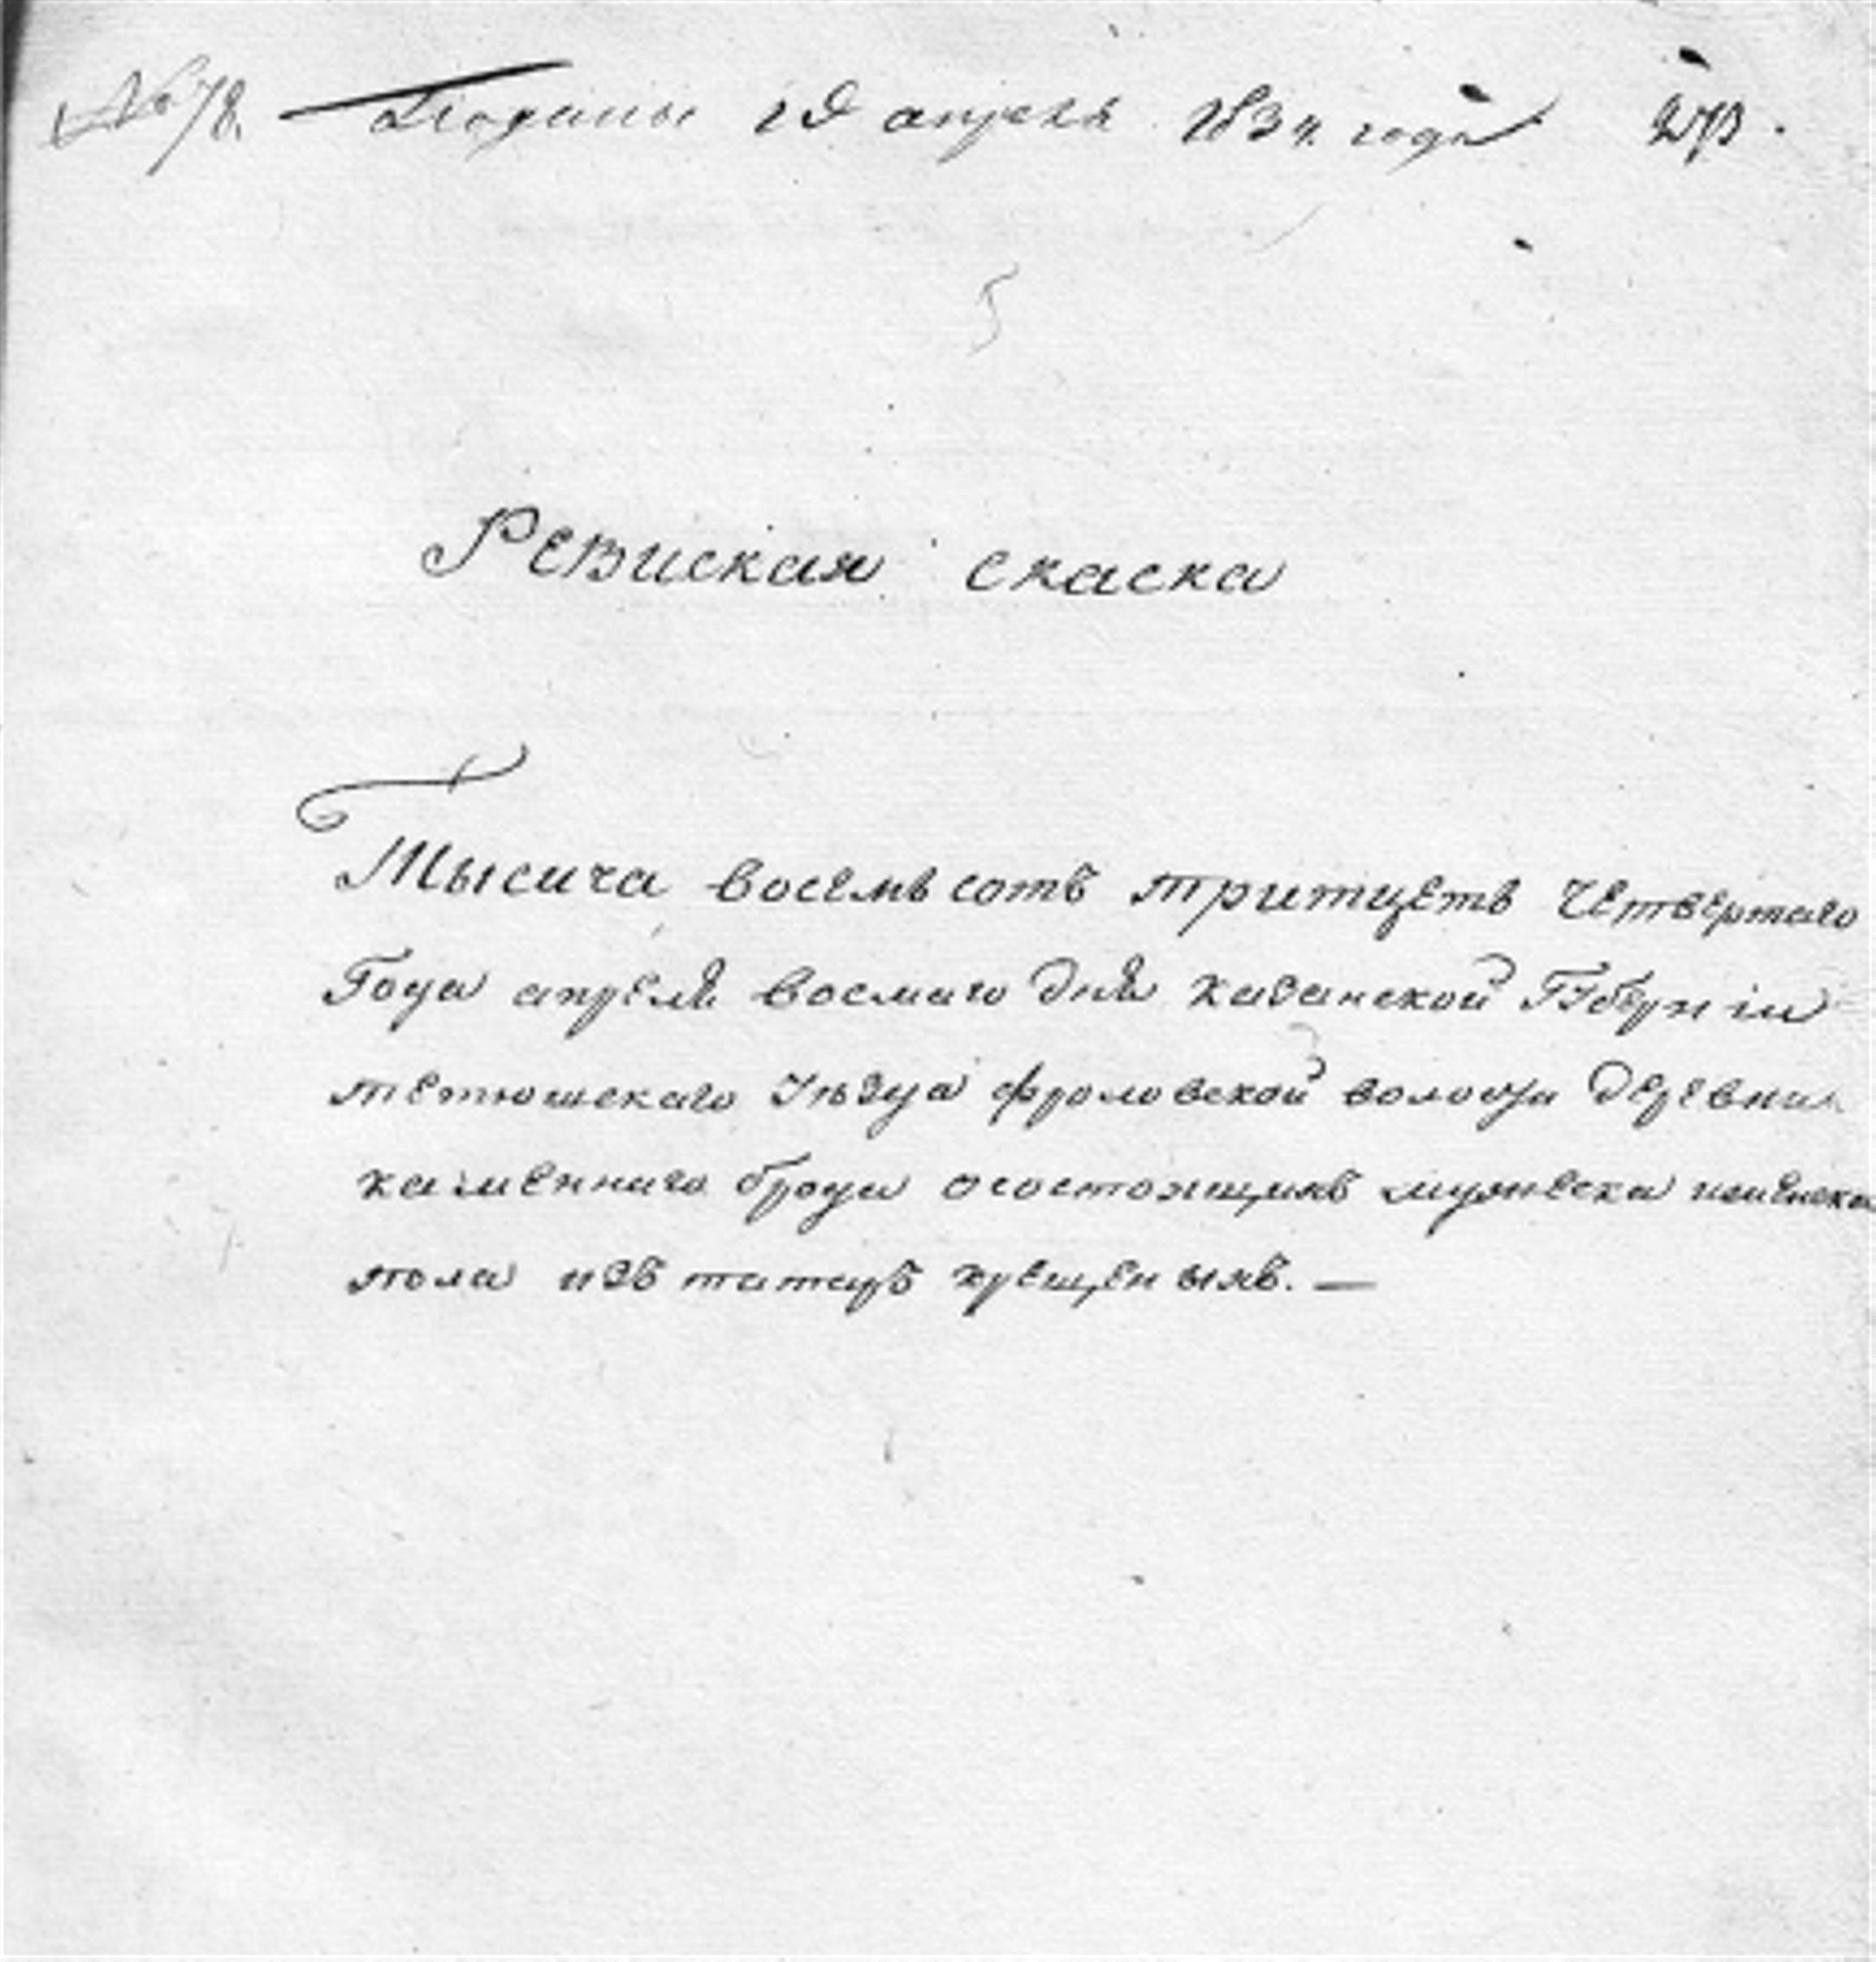 № 78. Поданы 19 апреля 1834 года 273.
Ревиская скаска
Тысяча восемь сотъ тритцеть четвертаго
Года апреля восмаго дня казанской Губерніи
тетюшскаго Уезда фроловской волости деревни
каменнаго брода осостоящихъ мужеска иженска
пола изъ татаръ крещеныхъ. —